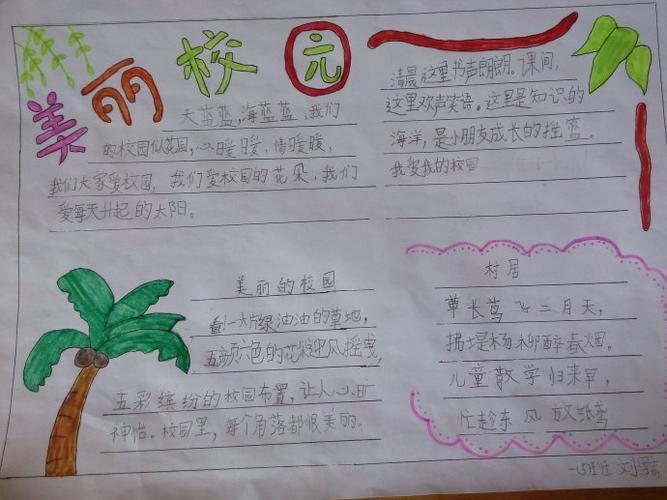 美丽校园
天蓝蓝,海蓝蓝,我们
的校园似花园,心暖暖,情暖暖,
我们大家爱校园,我们爱校园的花朵,我们
爱每天升起的太阳。
清晨这里书声朗朗。课间,
这里欢声笑语。这里是知识的
海洋,是小朋友成长的摇篮。
我爱我的校园
美丽的校园
看!一大片绿油油的草地,
五颜六色的花朵迎风摇曳,
五彩缤纷的校园布置,让人心旷
神怡。校园里,每个角落都很美丽。
村居
草长莺飞二月天,
拂堤杨柳醉春烟。
儿童散学归来早,
忙趁东风放纸鸢
刘